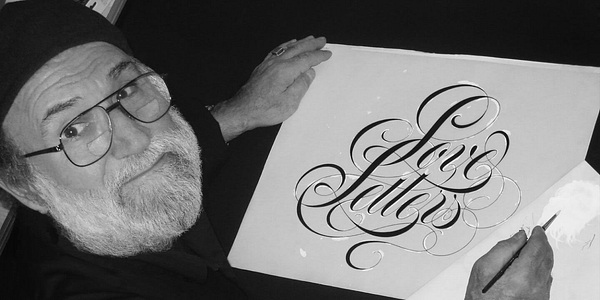 Love
Letters